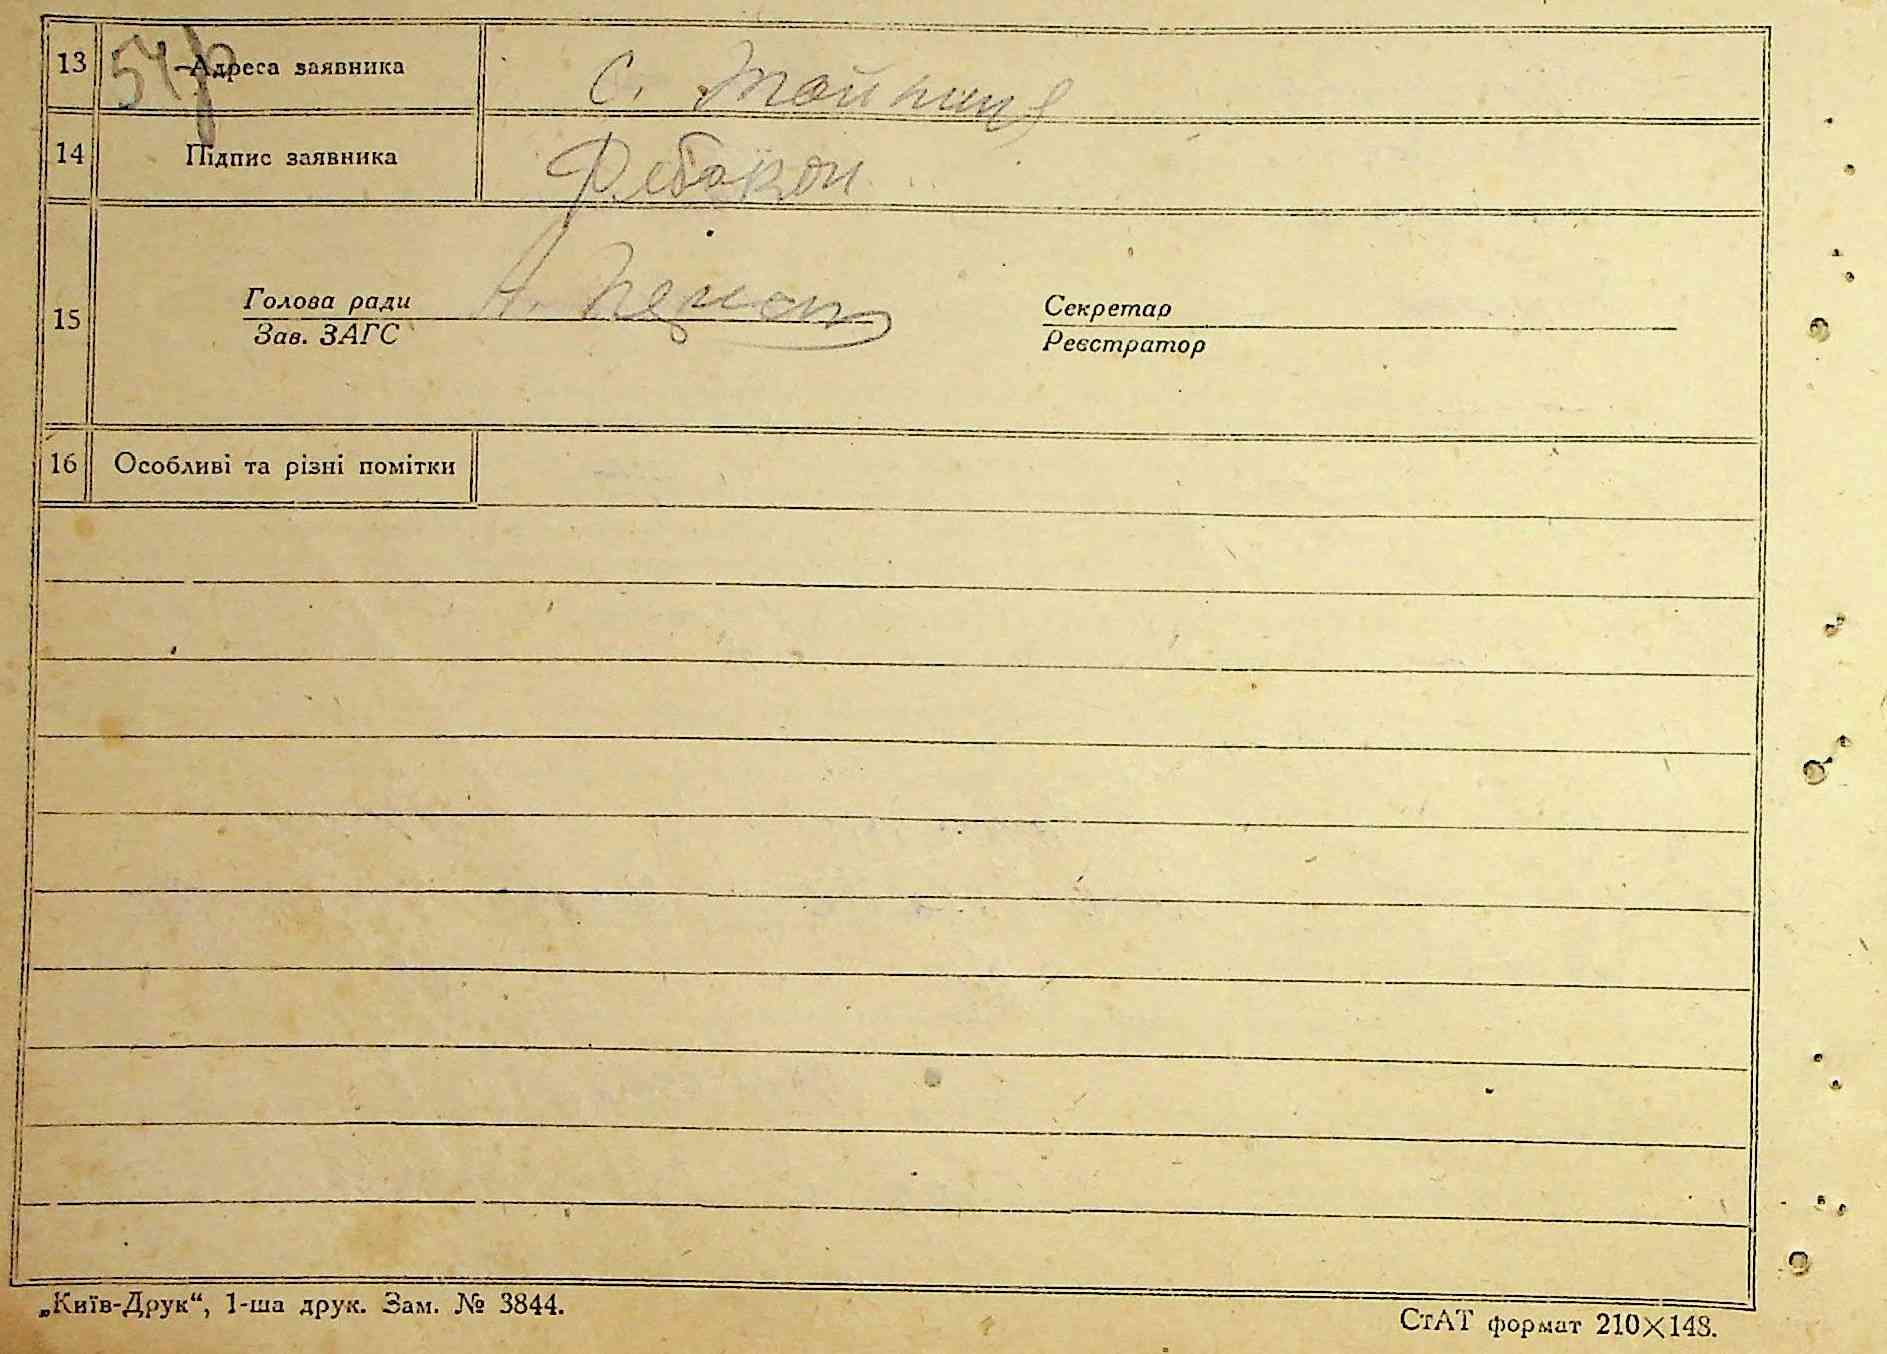 13 54р Адреса заявника с.
14 Підпис заявника
15 Голова ради Секретар
Зав. ЗАГС Реєстратор
16 Особливі та різні помітки
„Київ-Друк“, 1-ша друк. Зам. № 3844.
СтАТ формат 210×148.